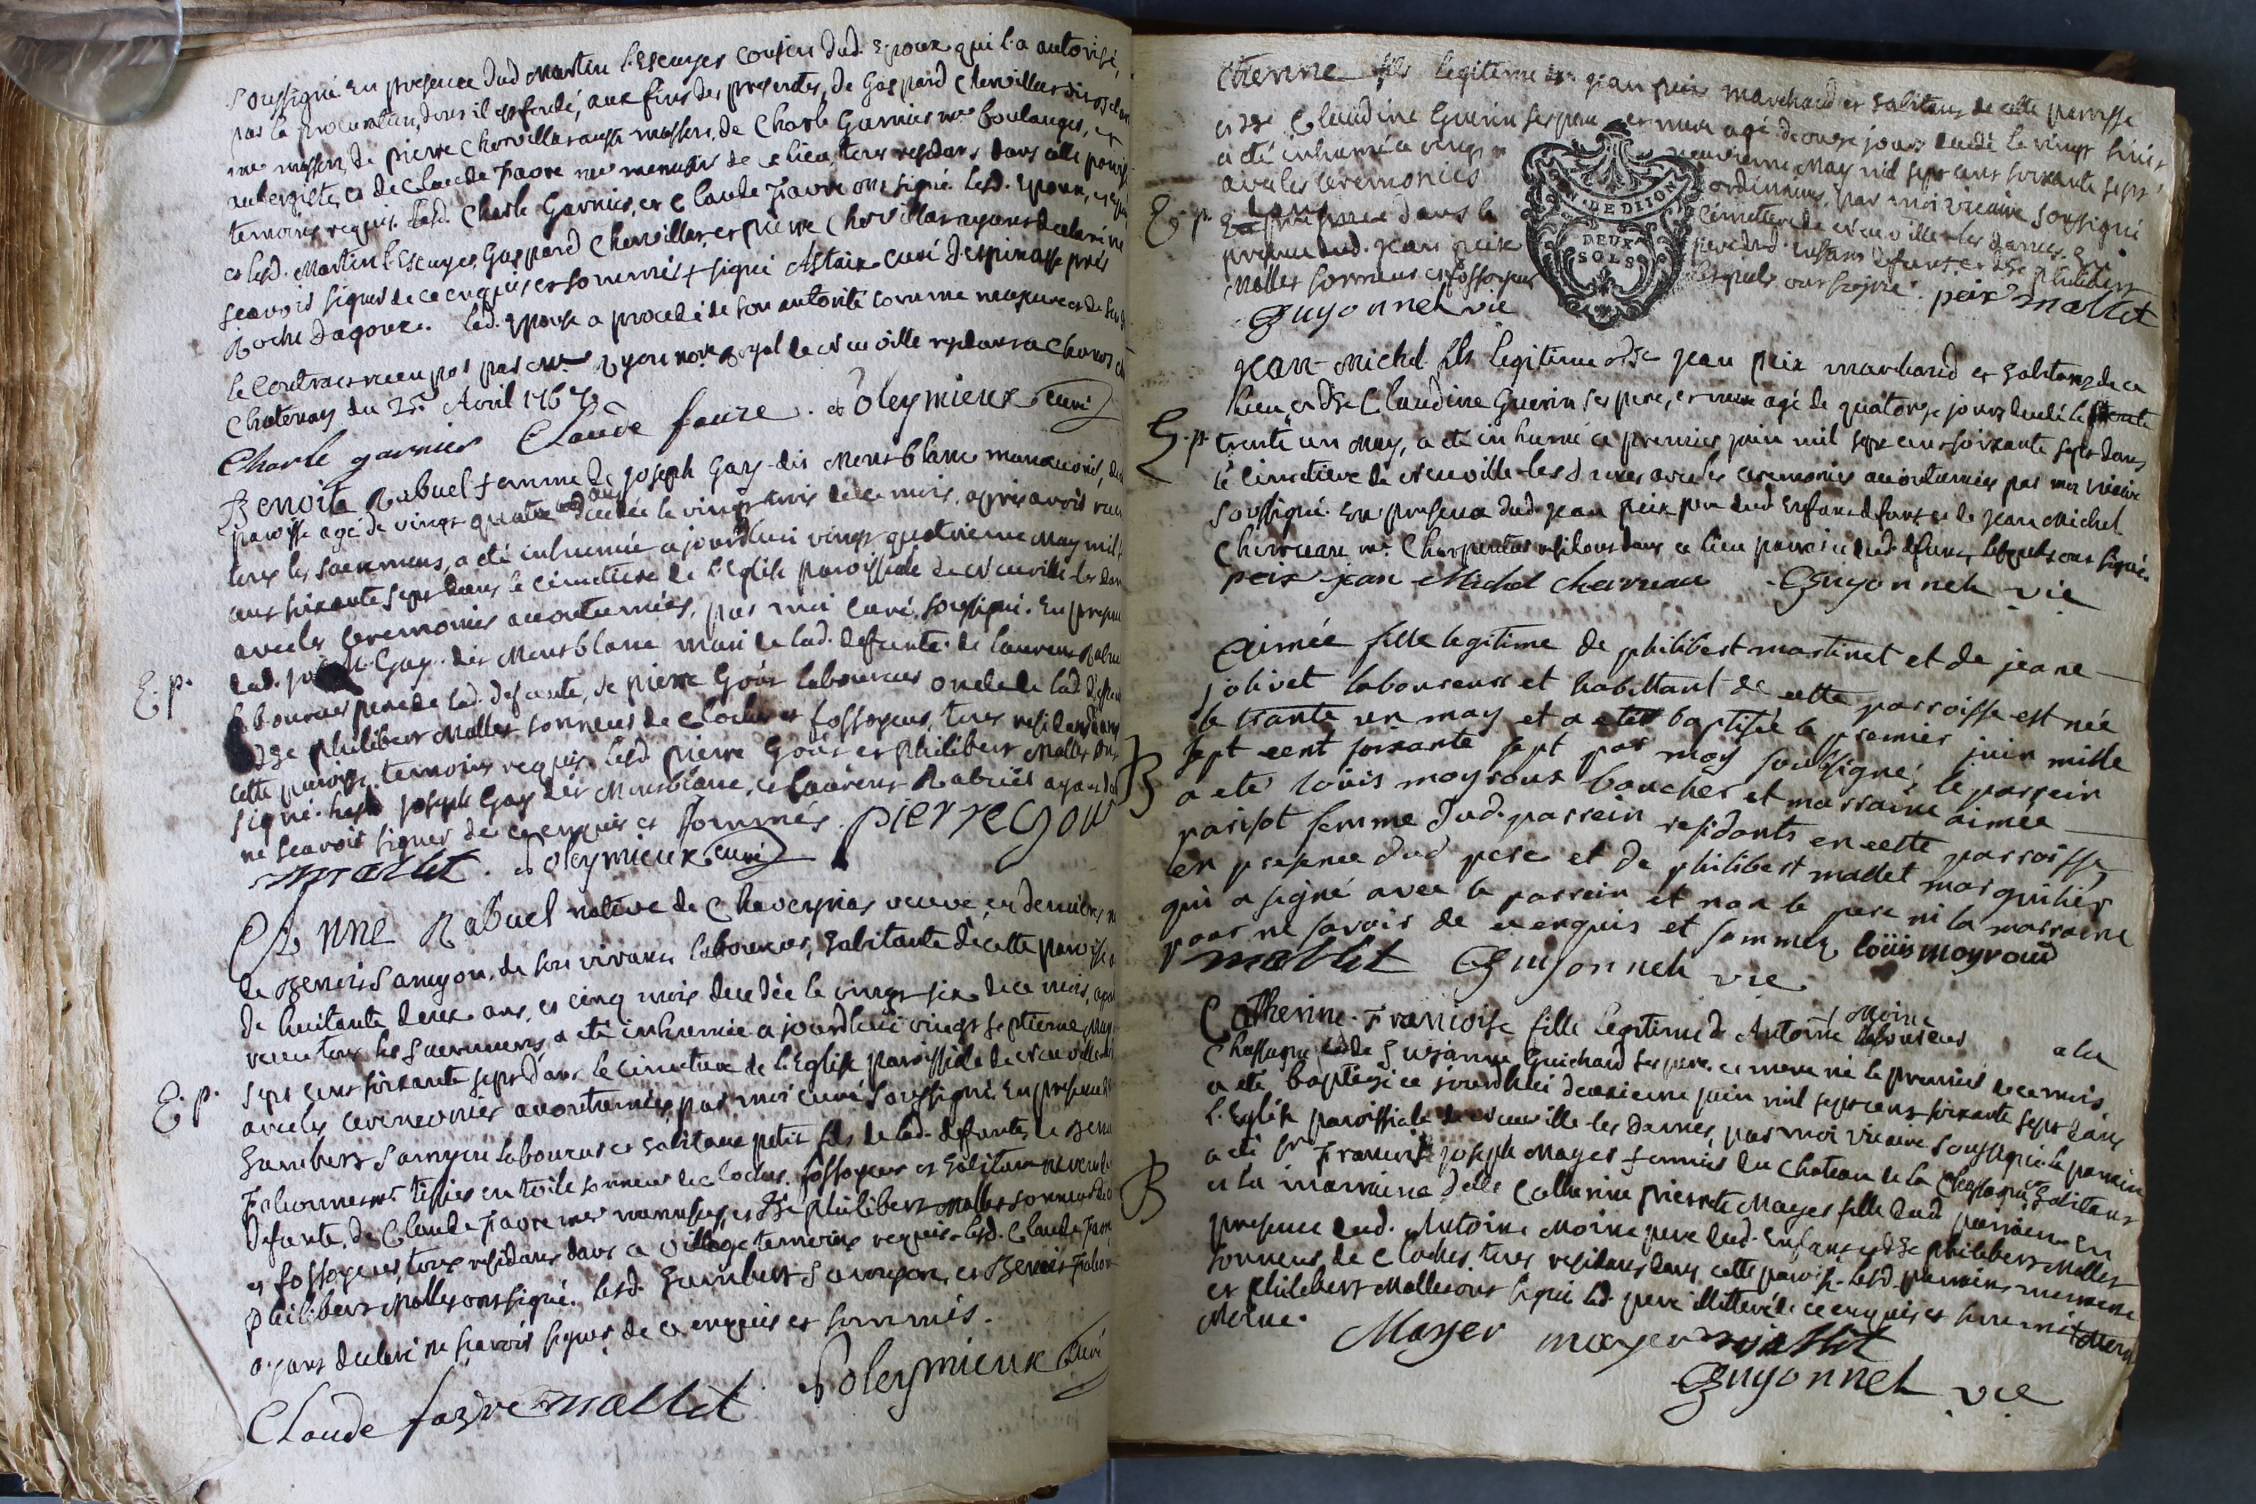 soussigné En presence dud Martin l'Escuyer Cousin dud. Epoux qui l'a autorisé,
par la procuration, dont il est fondé, aux fins des presentes, de Gaspard Chervillar
me masson, de pierre Chervillar aussi masson, de Charle Garnier me boulanger, et
aubergiste, et de Claude Favre me menusier de ce lieu, tous residans dans cette paroisse
temoins requis. Lesd. Charle Garnier, et Claude Favre ont signé lesd. Epoux,
et lesd. Martin l'Escuyer, Gaspard Chervillar, et pierre Chervillar ayant declaré ne
scavoir signer de ce enquis et sommés + signé Astaix curé d'espinasse près
Roche dagoux. lad. Epouse a procedé de son autorité comme majeure et de
le Contract receu par me Guyon nore Royal de Neuville residant a
Chatenay du 25e Avril 1767.
Charle garnier Claude faure. Poleymieux curé
Benoite Rabuel femme de joseph Gay dit Montblanc manouvrier, de
paroisse agé de vingt quatre ans decedée le vingt trois de ce mois, après avoir receu
tous les sacremens, a été inhumée ajourdhui vingt quatrieme May mil
cent soixante sept dans le cimetiere de l'Eglise paroissiale de Neuville les dames
avec les ceremonies accoutumées, par moi curé soussigné. En presence
dud. joseph Gay dit Montblanc mari de lad. defunte. de laurent Rabuel
E. p.
laboureur pere de lad. defunte, de pierre Goux laboureur oncle de lad. defunte
et de philibert Mallet sonneur de cloches et fossoyeur, tous residans dans
cette paroisse temoins requis. lesd. pierre Goux et philibert Mallet ont
signé. lesd joseph Gay dit Montblanc, et laurent Rabuel ayant
ne scavoir signer de ce enquis et sommés. pierre Goux
mallet. Poleymieux curé
Anne Rabuel native de Chaveyriat veuve en dernieres
de Benoit Samyon, de son vivant laboureur, habitante de cette paroisse
de huitante deux ans, et cinq mois decedée le vingt six de ce mois, après
receu tous les sacremens, a été inhumée ajourdhui vingt septieme May
E. p.
sept cent soixante sept dans le cimetiere de l'Eglise paroissiale de Neuville
avec les ceremonies accoutumées, par moi curé soussigné. En presence
humbert Samyon laboureur et habitant petit fils de lad. defunte, de Benoit
me tissier en toile sonneur de cloches, fossoyeur et habitant
defunte, de Claude Favre me menusier, et de philibert Mallet sonneur de
et fossoyeur, tous residans dans ce village temoins requis. lesd. Claude Favre
philibert Mallet ont signé. lesd. humbert Samyon, et Benoit
ayant declaré ne scavoir signer de ce enquis et sommés.
Poleymieux curé
Claude favre mallet
Etienne fils legitime de jean peix marchand et habitant de cette paroisse
et de Claudine Guerin ses pere et mere agé de onze jours decedé le vingt huit
a été inhumé ce vingt neuvieme May mil sept cent soixante sept
avec les ceremonies ordinaires, par moi vicaire soussigné
E. p.
dans le cimetiere de Neuville les dames, En
presence dud. jean peix pere dud. enfant defunt et de philibert
Mallet sonneur et fossoyeur lesquels ont signé. peix mallet
Guyonnet vic
GEN. DE DIJON
DEUX
SOLS
jean-Michel fils legitime de jean peix marchand et habitant de ce
lieu, et de Claudine Guerin ses pere, et mere agé de quatorze jours decedé le
E. p.
trente un May, a été inhumé ce premier juin mil sept cent soixante sept dans
le cimetiere de Neuville-les dames avec les ceremonies accoutumées par moi vicaire
soussigné. En presence dud. jean peix pere dud. Enfant defunt et de jean Michel
Charveau me Charpentier residant dans ce lieu parrain dud. defunt, lesquels ont signés.
peix jean Michel charveau Guyonnet vic
Aimée fille legitime de philibert martinet et de jeane
jolivet laboureurs et habittant de cette parroisse est née
le trante un may et a eté baptisée le premier juin mille
B
sept cent soixante sept par moy soubsigné, le parrein
a eté louis moyroux boucher et marraine aimée
parisot femme dud. parrein residants en cette parroisse
en presence dud pere et de philibert mallet marguilier
qui a signé avec le parrein et non le pere ni la marraine
pour ne savoir de ce enquis et sommez louis moyroud
mallet Guyonnet vic
Catherine-Francoise fille legitime de Antoine Moine laboureur a la
Chassagne et de Suzanne Guichard ses pere et mere né le premier de ce mois,
a été baptizé ce jourdhui deuxieme juin mil sept cent soixante sept dans
l'Eglise paroissiale de Neuville-les dames, par moi vicaire soussigné le parrein
B
a été Sr Francois joseph Mayer fermier du chateau de la Chassagne habitant
et la marraine delle Catherine pierrette Mayer fille dud parrein. En
presence dud. Antoine Moine pere dud. enfant et de philibert Mallet
sonneur de cloches, tous residans dans cette paroisse. lesd. parrein, marraine
et philibert Mallet ont signé led. pere illitteré de ce enquis et sommé
Moine.
Mayer mayer mallet
Guyonnet vic